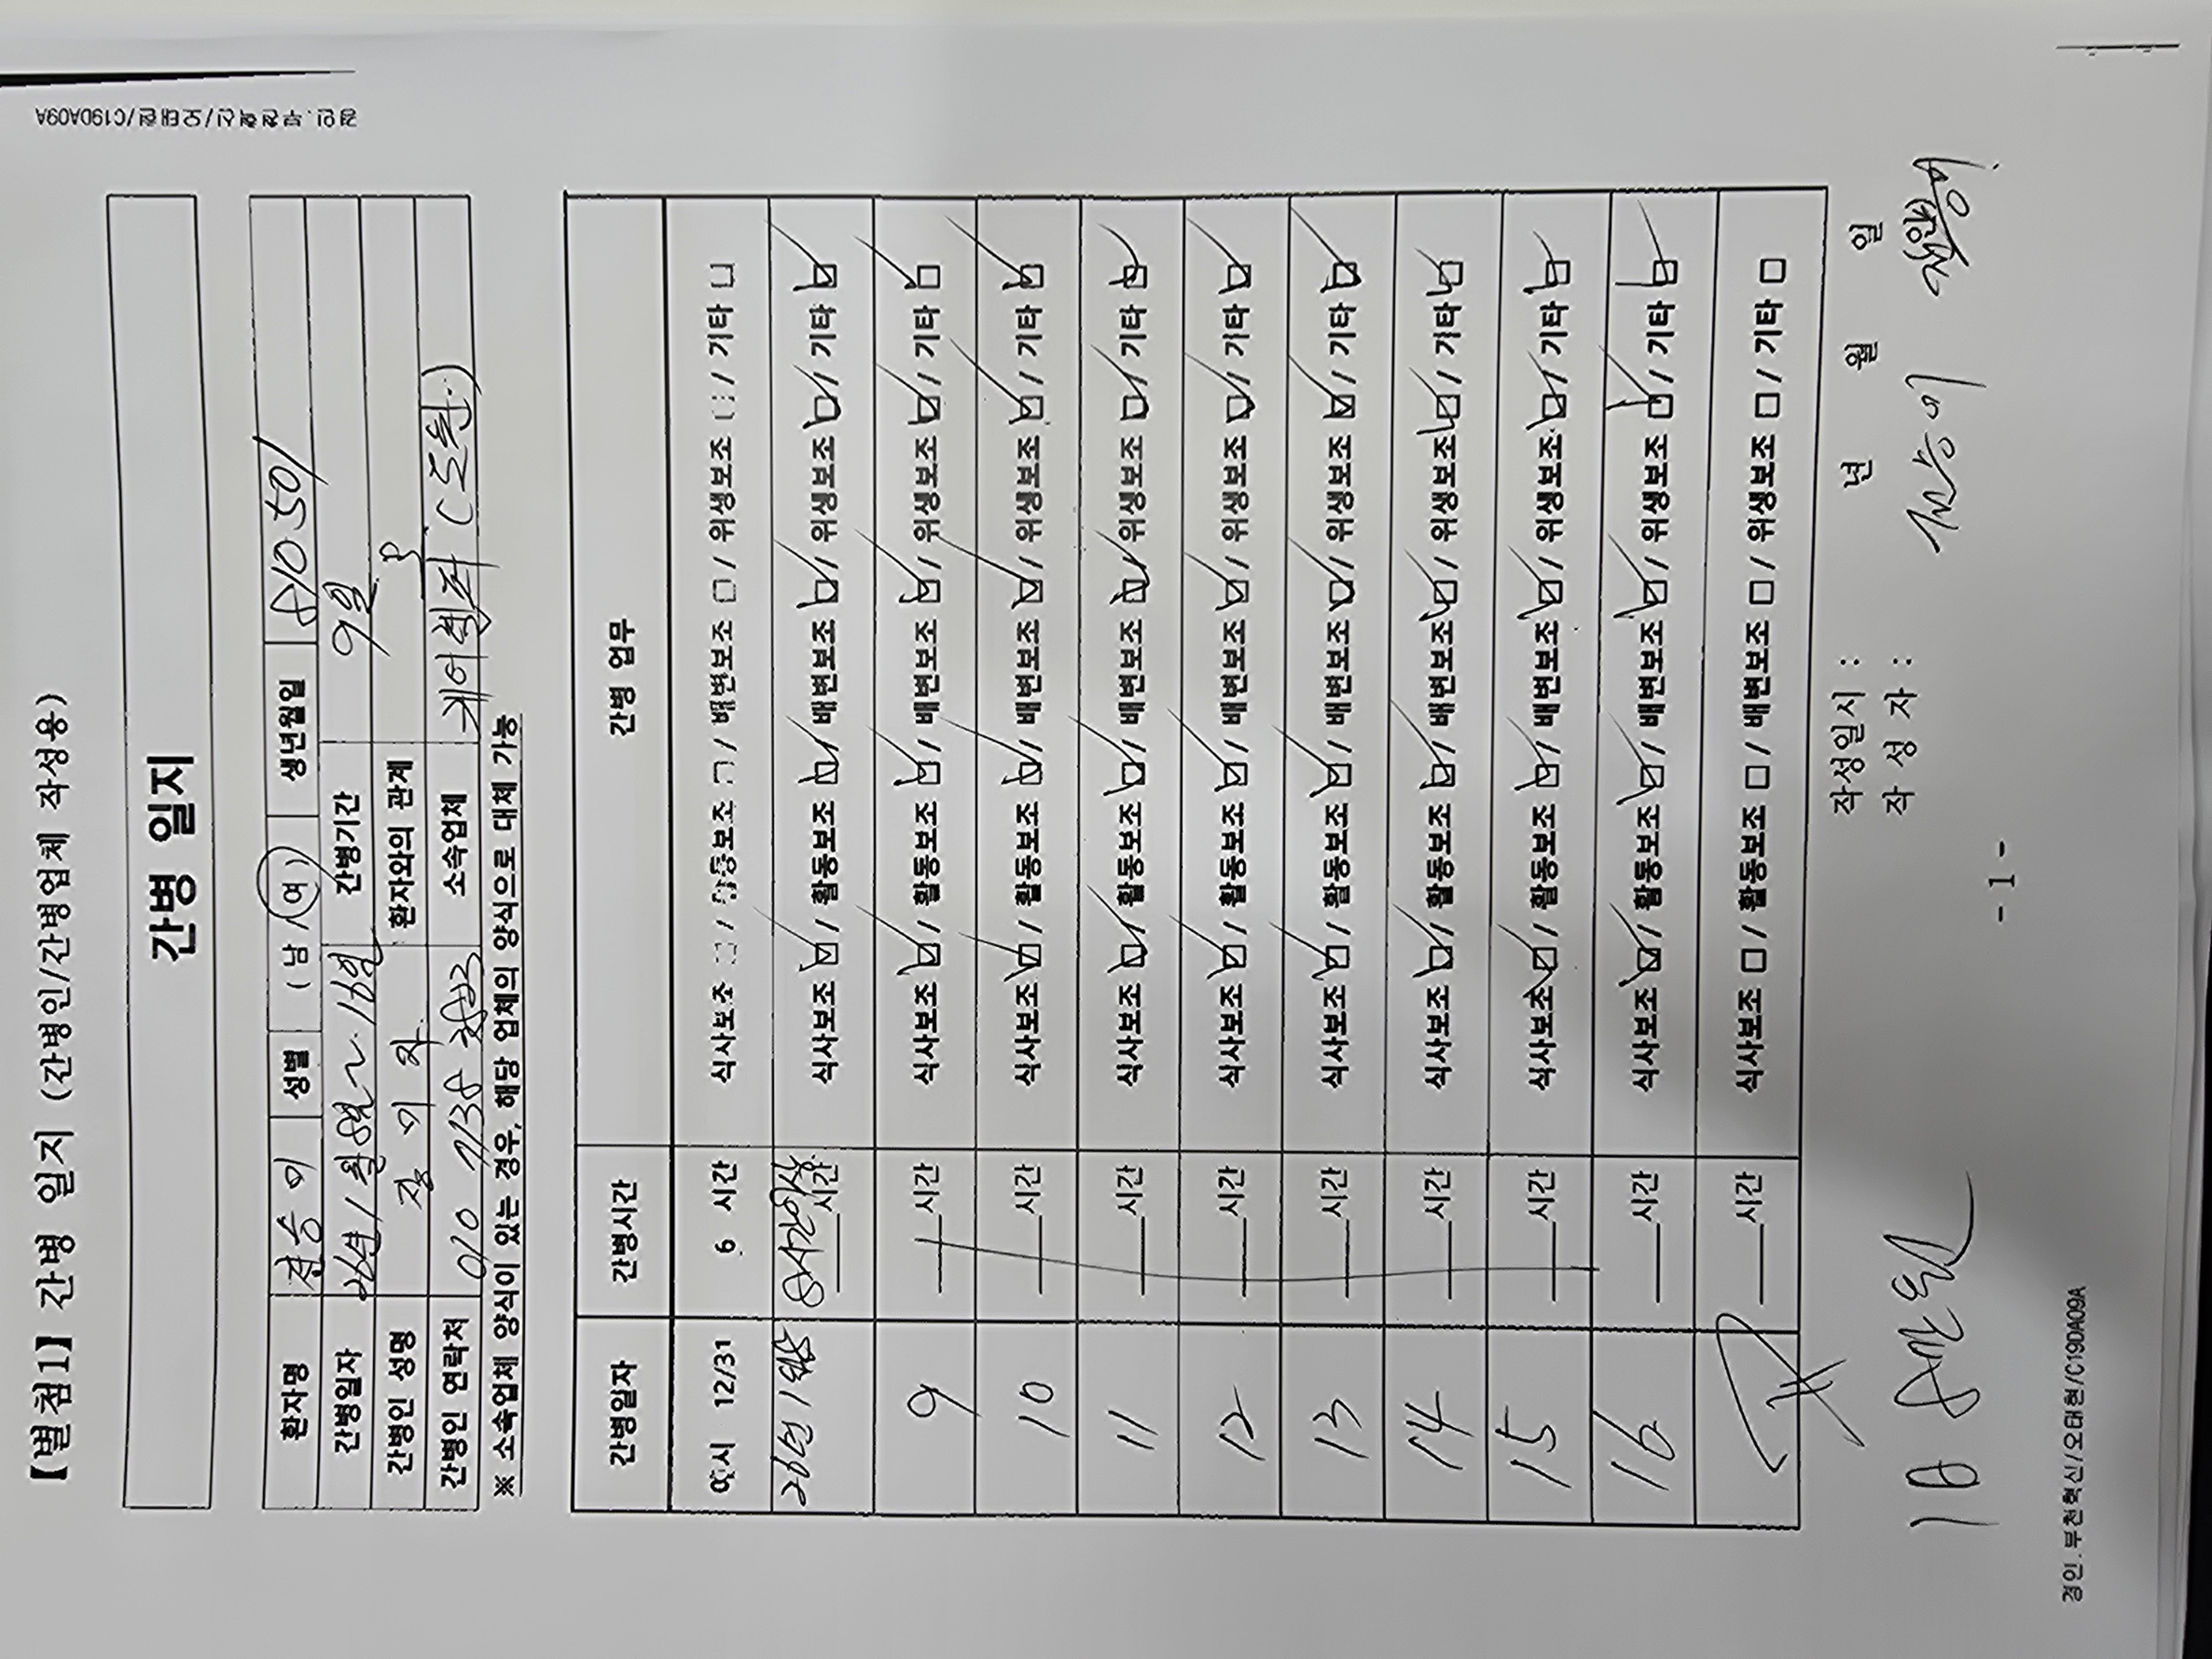 경인.부천혁신/오태현/C19DA09A
【별첨1】 간병 일지 (간병인/간병업체 작성용)
간병 일지
환자명 전승미 성별 (남/여) 생년월일 810501
간병일자 26년 1월 8일~16일 간병기간 9일
간병인 성명 장미자 환자와의 관계 무
간병인 연락처 010 7138 소속업체 케어헬퍼 (도원)
※ 소속업체 양식이 있는 경우, 해당 업체의 양식으로 대체 가능
간병일자 간병시간 간병 업무
예시 12/31 6 시간 식사보조 □ / 활동보조 □ / 배변보조 □ / 위생보조 □ / 기타 □
26년 1월8 8시간이상 시간 식사보조 ☑ / 활동보조 ☑ / 배변보조 ☑ / 위생보조 ☑ / 기타 ☑
9 시간 식사보조 ☑ / 활동보조 ☑ / 배변보조 ☑ / 위생보조 ☑ / 기타 ☑
10 시간 식사보조 ☑ / 활동보조 ☑ / 배변보조 ☑ / 위생보조 ☑ / 기타 ☑
11 시간 식사보조 ☑ / 활동보조 ☑ / 배변보조 ☑ / 위생보조 ☑ / 기타 ☑
12 시간 식사보조 ☑ / 활동보조 ☑ / 배변보조 ☑ / 위생보조 ☑ / 기타 ☑
13 시간 식사보조 ☑ / 활동보조 ☑ / 배변보조 ☑ / 위생보조 ☑ / 기타 ☑
14 시간 식사보조 ☑ / 활동보조 ☑ / 배변보조 ☑ / 위생보조 ☑ / 기타 ☑
15 시간 식사보조 ☑ / 활동보조 ☑ / 배변보조 ☑ / 위생보조 ☑ / 기타 ☑
16 시간 식사보조 ☑ / 활동보조 ☑ / 배변보조 ☑ / 위생보조 ☑ / 기타 ☑
시간 식사보조 □ / 활동보조 □ / 배변보조 □ / 위생보조 □ / 기타 □
작성일시 : 년 월 일
작 성 자 : 전승미 (서명)
1日 8만원
- 1 -
경인.부천혁신/오태현/C19DA09A